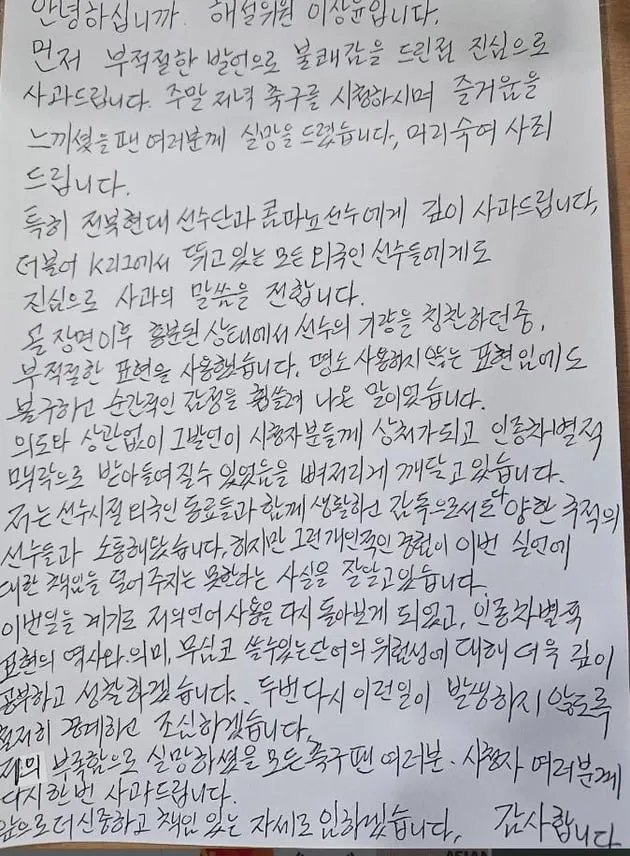 안녕하십니까. 해설위원 이상윤입니다.
먼저 부적절한 발언으로 불쾌감을 드린점 진심으로
사과드립니다. 주말 저녁 축구를 시청하시며 즐거움을
느끼셨을 팬 여러분께 실망을 드렸습니다, 머리숙여 사죄
드립니다.
특히 전북현대 선수단과 콤파뇨선수에게 깊이 사과드립니다,
더불어 K리그에서 뛰고 있는 모든 외국인 선수들에게도
진심으로 사과의 말씀을 전합니다.
골 장면이후 흥분된 상태에서 선수의 기량을 칭찬하던중,
부적절한 표현을 사용했습니다. 평소 사용하지 않는 표현임에도
불구하고 순간적인 감정을 휩쓸려 나온 말이었습니다.
의도와 상관없이 그발언이 시청자분들께 상처가되고 인종차별적
맥락으로 받아들여질수 있었음을 뼈저리게 깨닫고 있습니다.
저는 선수시절 외국인 동료들과 함께 생활하고 감독으로서도 다양한 국적의
선수들과 소통해왔습니다, 하지만 그런 개인적인 경험이 이번 실언에
대한 책임을 덜어 주지는 못한다는 사실을 잘알고있습니다.
이번일을 계기로 저의언어사용을 다시 돌아보게 되었고, 인종차별적
표현의 역사와 의미, 무심코 쓸수있는단어의 위험성에 대해 더욱 깊이
공부하고 성찰하겠습니다. 두번다시 이런일이 발생하지 않도록
철저히 경계하고 조심하겠습니다.
저의 부족함으로 실망하셨을 모든 축구팬 여러분. 시청자 여러분께
다시한번 사과드립니다.
앞으로 더 신중하고 책임 있는 자세로 임하겠습니다, 감사합니다